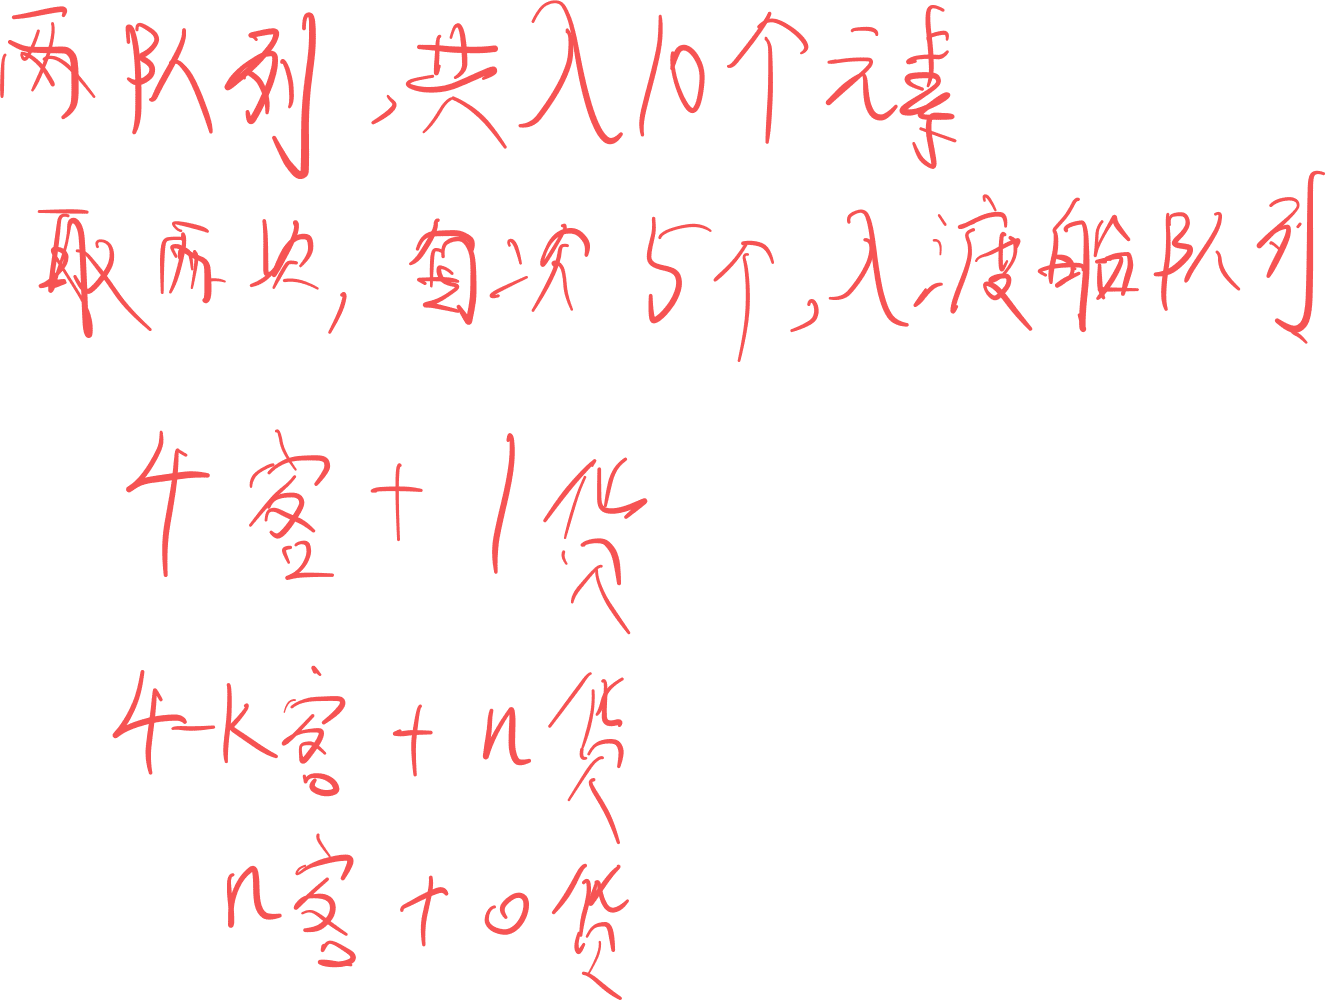 两队列,共入10个元素
取两次,每次5个,入渡船队列
4客+1货
4-k客+n货
n客+0货